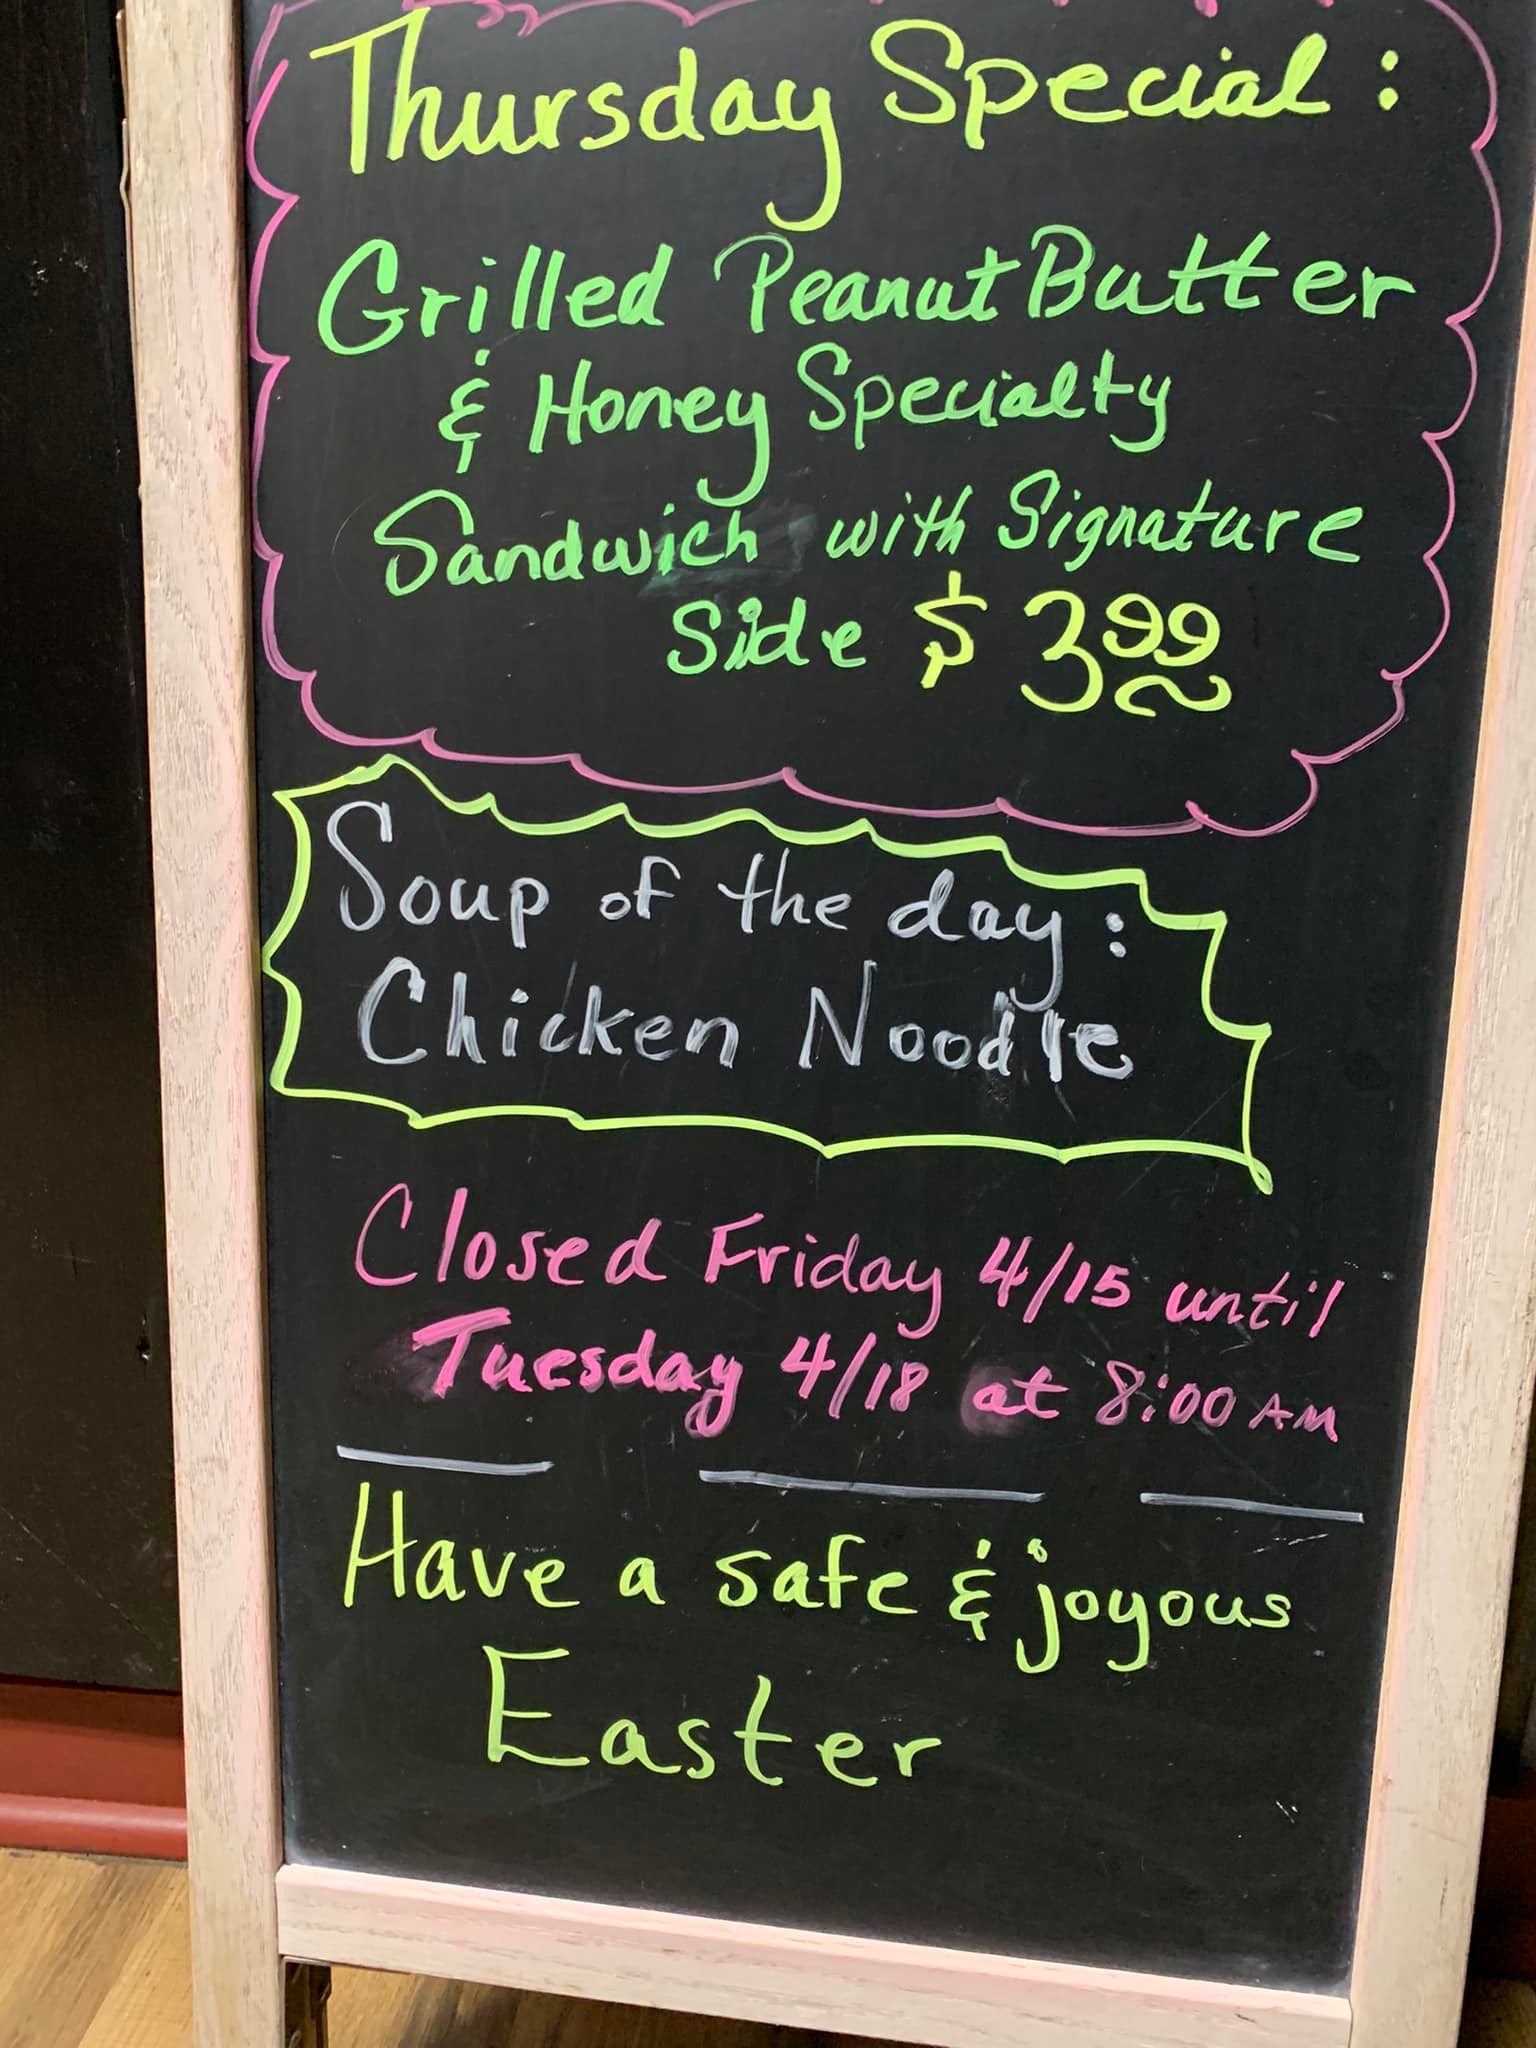 Thursday Special:
Grilled Peanut Butter
& Honey Specialty
Sandwich with Signature
Side $3.99
Soup of the day:
Chicken Noodle
Closed Friday 4/15 until
Tuesday 4/18 at 8:00 AM
Have a safe & joyous
Easter